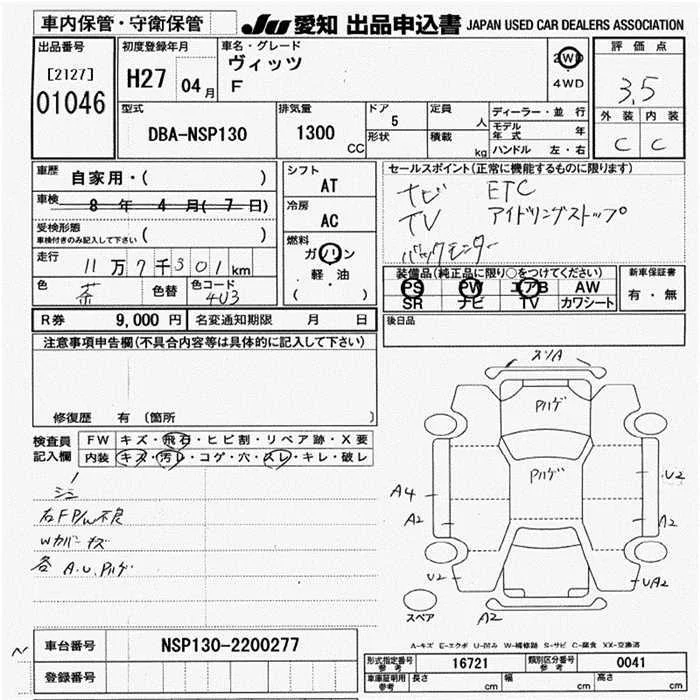 車内保管・守衛保管
JU 愛知 出品申込書 JAPAN USED CAR DEALERS ASSOCIATION
出品番号
[2127]
01046
初度登録年月
H27 04月
車名・グレード
ヴィッツ
F
2WD
4WD
評価点
3.5
外装 内装
C C
型式
DBA-NSP130
排気量
1300 CC
ドア 5
形状
定員 人
積載 kg
ディーラー・並行
モデル年式 年
ハンドル 左・右
車歴 自家用・( )
車検 8年 4月(7日)
受検形態
車検付きのみ記入して下さい ( )
走行 11万7千301km
色 茶 色替 色コード 4U3
シフト
AT
冷房
AC
燃料
ガソリン
軽・油
( )
セールスポイント(正常に機能するものに限ります)
ナビ ETC
TV アイドリングストップ
バックモニター
装備品(純正品に限り○をつけてください)
PS PW エアB AW
SR ナビ TV カワシート
新車保証書
有・無
R券 9,000円 名変通知期限 月 日
後日品
注意事項申告欄(不具合内容等は具体的に記入して下さい)
修復歴 有 (箇所 )
検査員記入欄
FW キズ・飛石・ヒビ割・リペア跡・X要
内装 キズ・汚レ・コゲ・穴・スレ・キレ・破レ
右F P/W不良
Wカバーキズ
各 A.U.Pハゲ
スリA
Pハゲ
Pハゲ
A4
A2
U2
U2
A2
UA2
A2
スペア
A-キズ E-エクボ U-凹み W-補修跡 S-サビ C-腐食 XX-交換済
車台番号 NSP130-2200277
登録番号
形式指定番号 参考 16721 類別区分番号 参考 0041
車庫証明用 参考 長さ cm 幅 cm 高さ cm